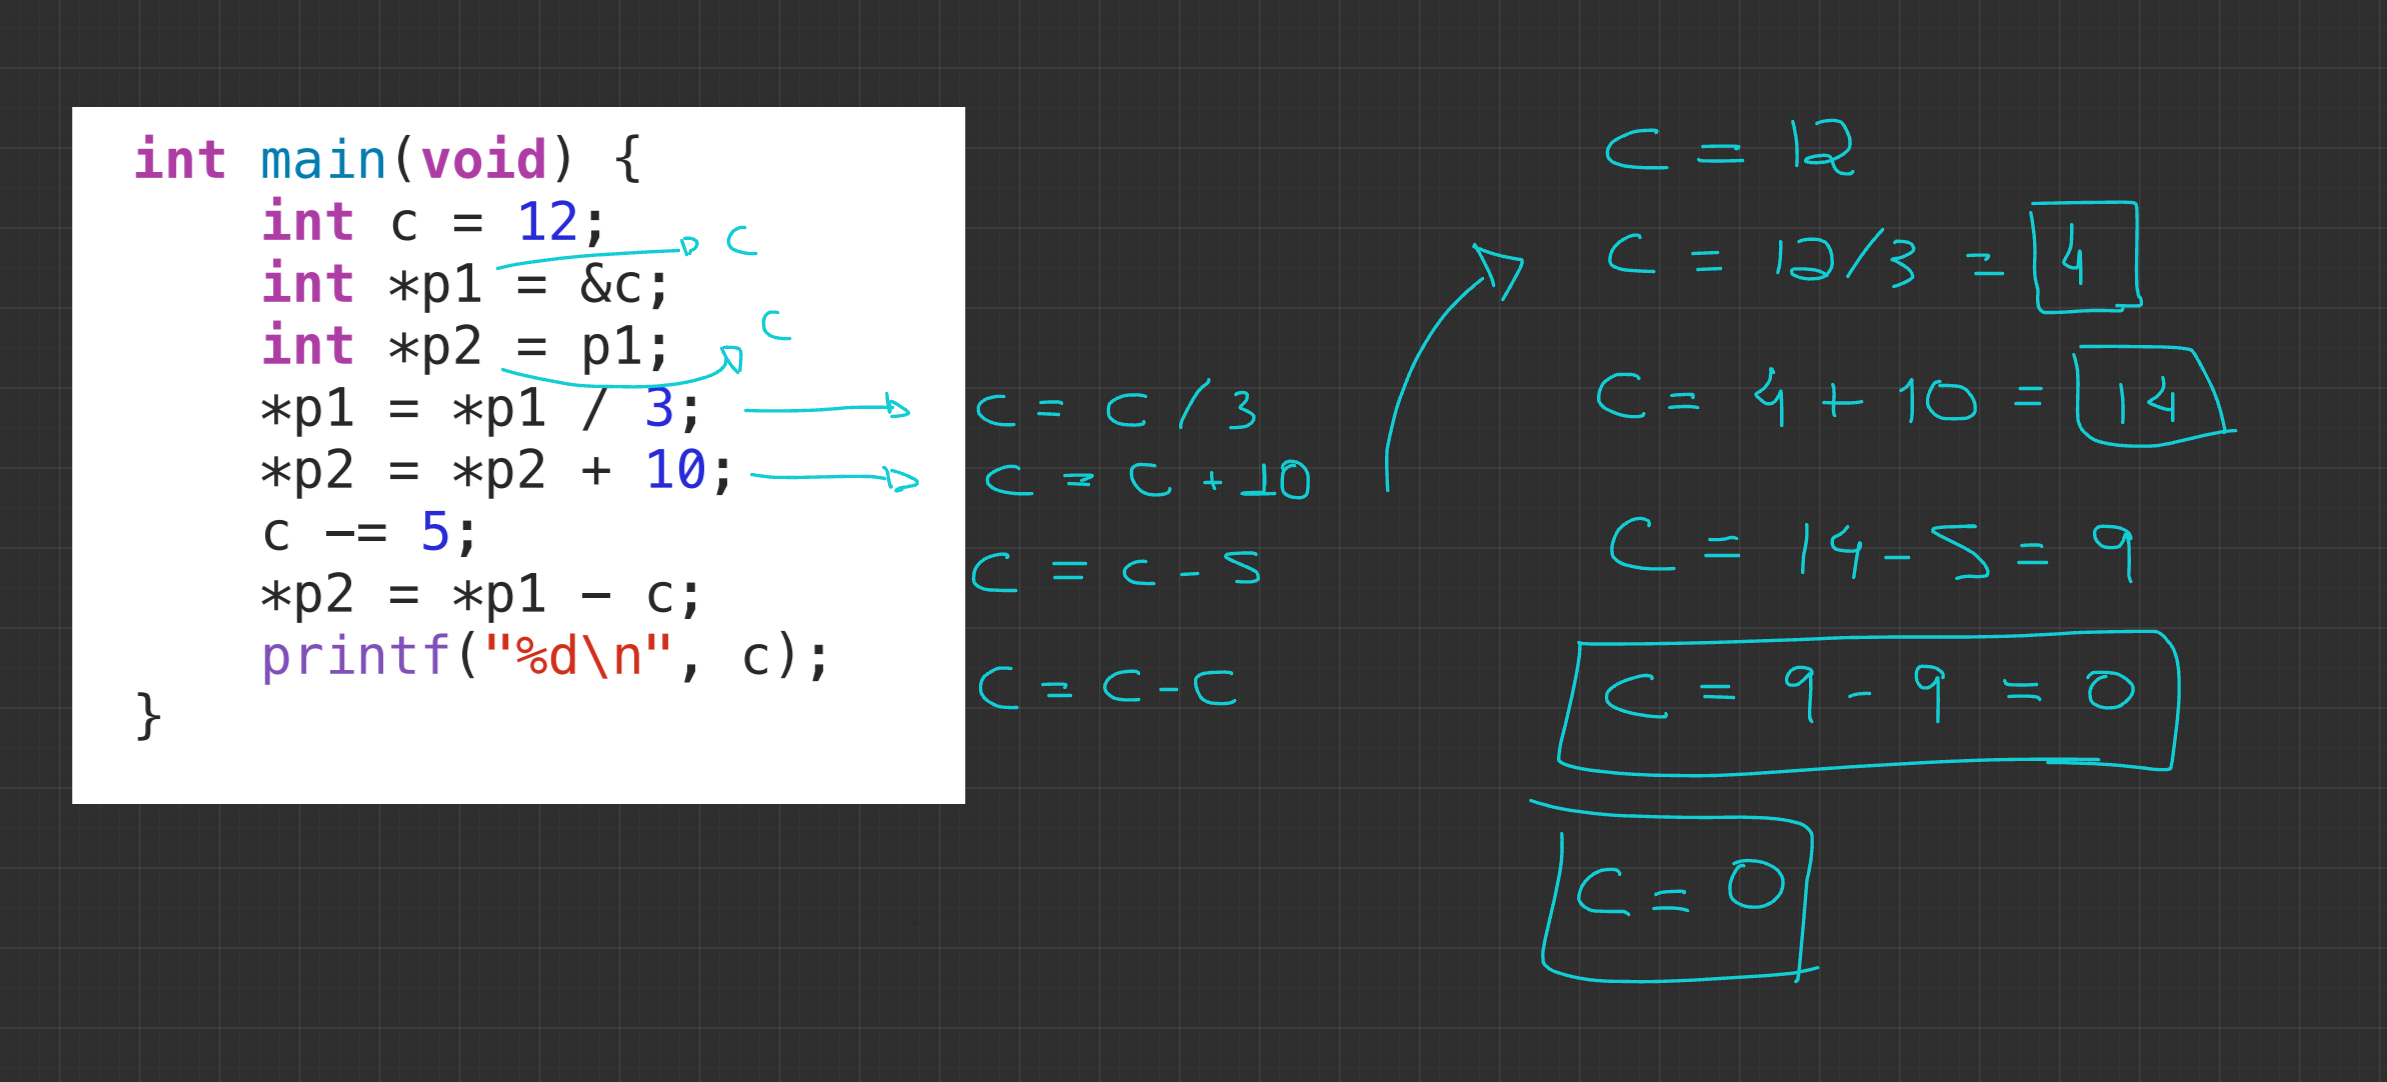 int main(void) {
int c = 12;
int *p1 = &c;
int *p2 = p1;
*p1 = *p1 / 3;
*p2 = *p2 + 10;
c -= 5;
*p2 = *p1 - c;
printf("%d\n", c);
}
c
c
c = c / 3
c = c + 10
c = c - 5
c = c - c
c = 12
c = 12/3 = 4
c = 4 + 10 = 14
c = 14 - 5 = 9
c = 9 - 9 = 0
c = 0